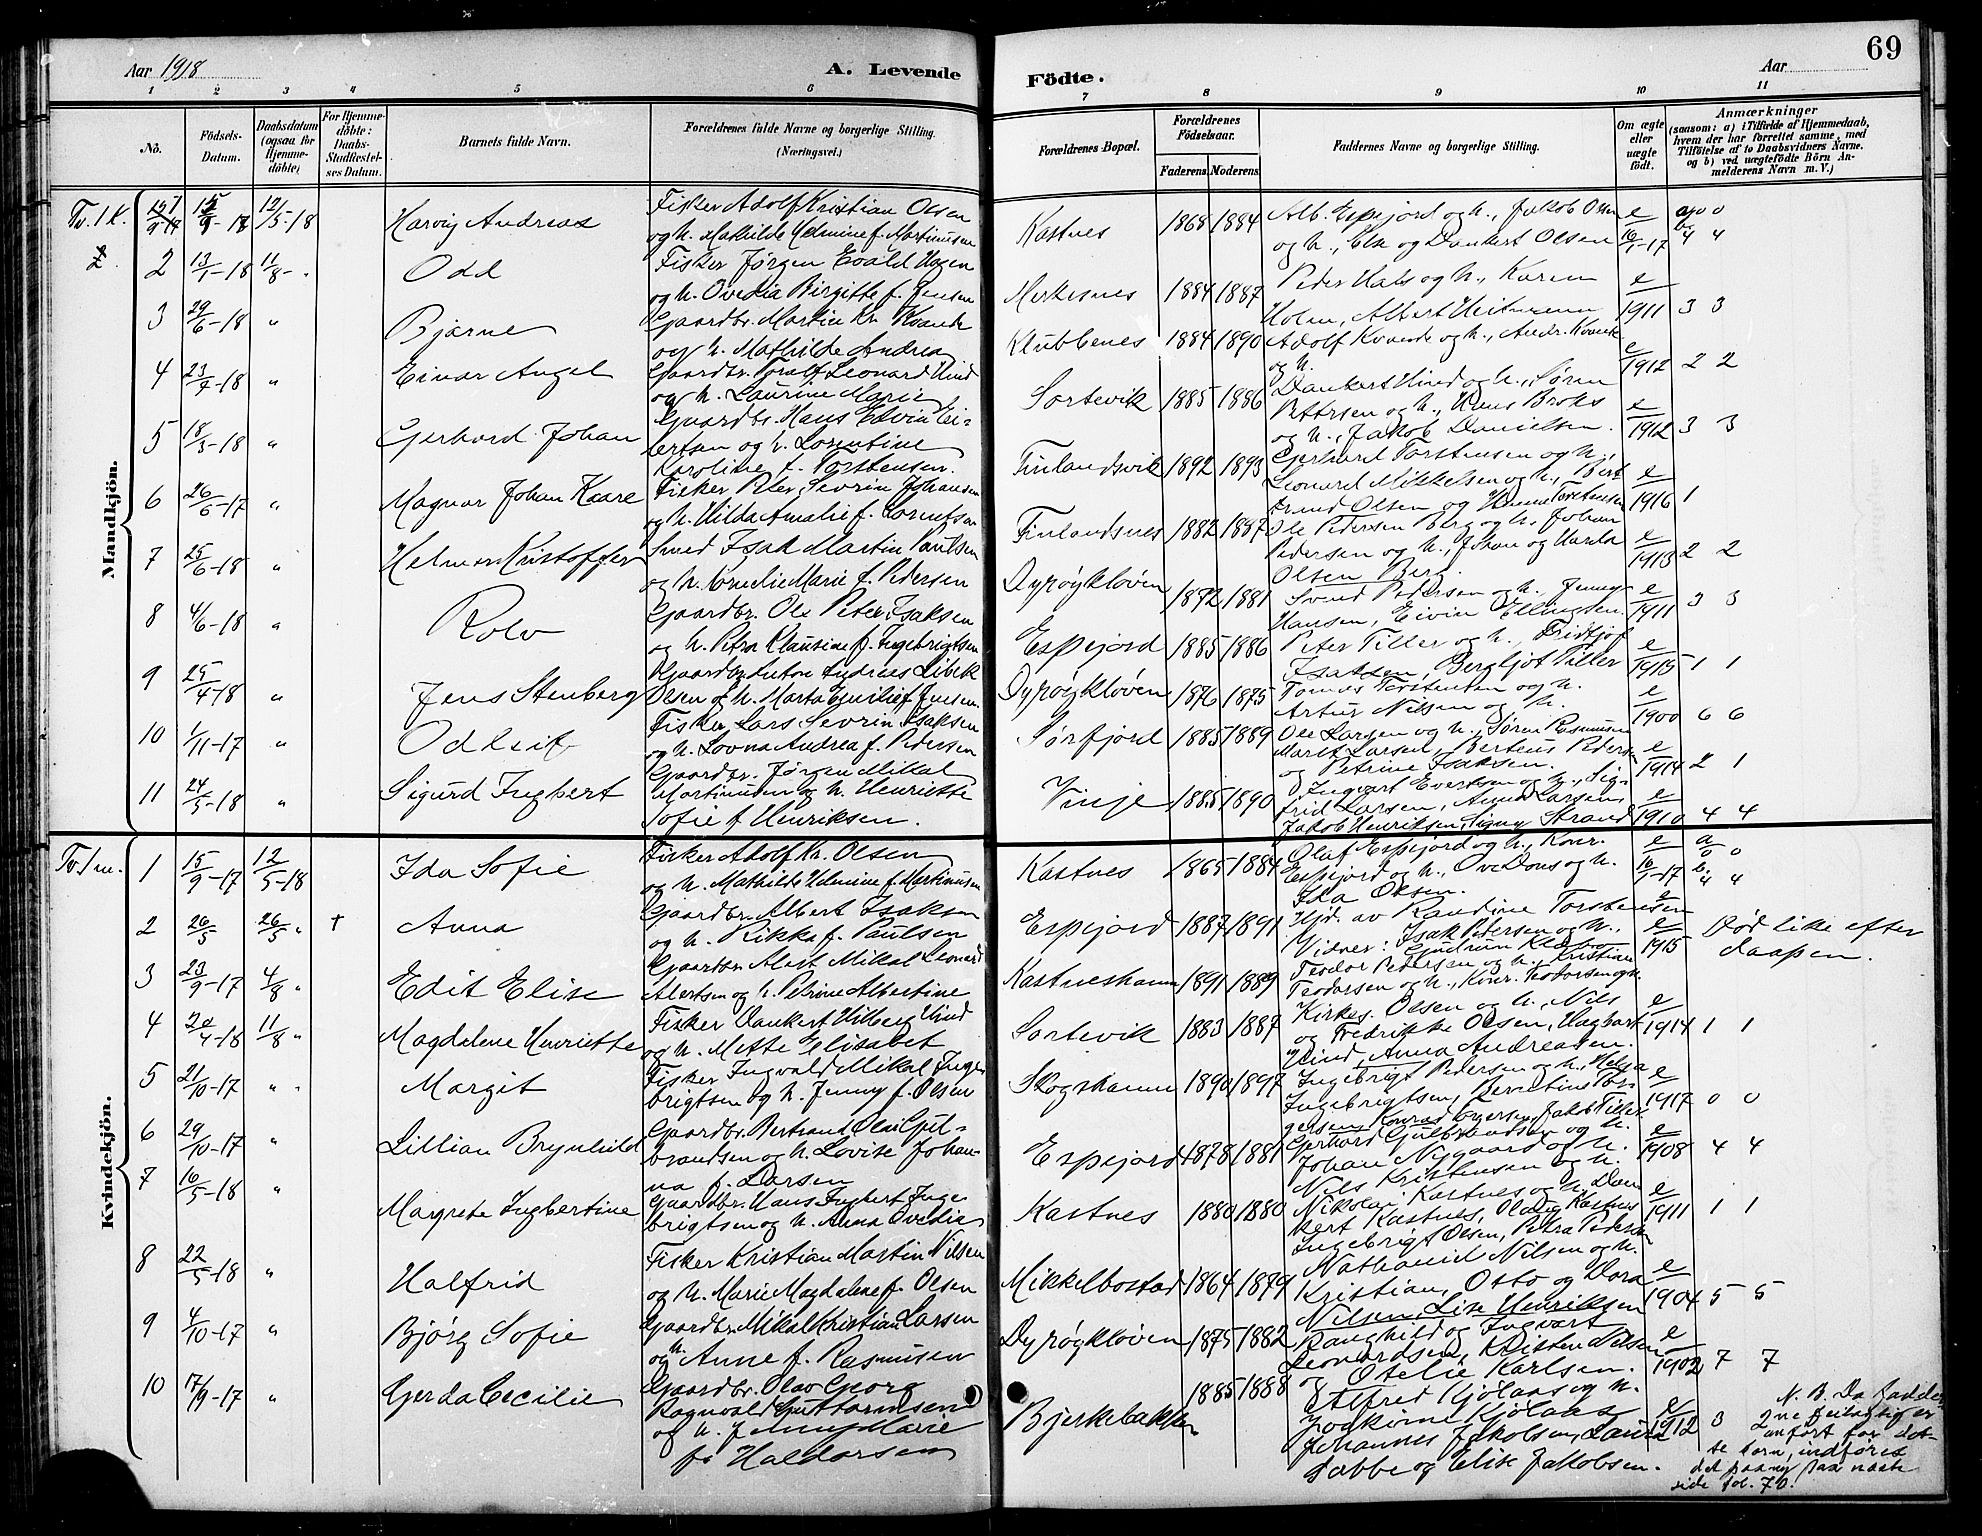 69
Aar 1918
A. Levende
Födte.
Aar
1 2 3 4 5 6 7 8 9 10 11
No.
Födsels-Datum.
Daabsdatum (ogsaa for Hjemmedöbte)
For Hjemmedöbte: Daabs-Stadfæstelses Datum.
Barnets fulde Navn.
Forældrenes fulde Navne og borgerlige Stilling.
(Næringsvei.)
Forældrenes Bopæl.
Forældrenes Födselsaar.
Faderens. Moderens.
Faddernes Navne og borgerlige Stilling.
Om ægte eller uægte födt.
Anmærkninger
(saasom: a) i Tilfælde af Hjemmedaab, hvem der har forrettet samme, med Tilföielse af to Daabsvidners Navne. og b) ved uægtefödte Börn Anmelderens Navn m. V.)
Mandkjön.
Tv. 1 k.
12/5-18
Harvig Andreas
Fisker Adolf Kristian Olsen
og h. Mathilde Helmine f. Martinussen
Kastnes 1868 1884
Alb. Espejord og h., Jakob Olsen
og h., Else og Dankert Olsen
e
2 13/1-18 11/8 - "
Odd
Fisker Jørgen Evald Hagen
og h. Ovedia Birgitte f. Jensen
Merkesnes 1884 1887
Peder Hals og h., Karen
Holm, Albert Heitmann
e 1911 3 3
3 29/6-18 "
Bjarne
Gaardbr. Martin Kr. Kvande
og h. Mathilde Andrea
Klubbenes 1884 1890
Adolf Kvande og h., Andr. Kvande
og h.
e 1912 2 2
4 23/7-18 "
Einar Angel
Gaardbr. Toralf Leonard Hind
og h. Laurine Marie
Sortevik 1885 1886
Dankert Hind og h., Søren
Pettersen og h., Hans Broks
og h., Jakob Danielsen.
e 1912 3 3
5 18/3-18 "
Gerhard Johan
Gaardbr. Hans Edvin Ei-
bertsen og h. Lorentine
Karoline f. Torstensen.
Finlandsvik 1892 1893
Gerhard Torstensen og h.,
Leonard Mikkelsen og h., Bert
rand Olsen og Hanna Torstensen
e 1916 1
6 26/6-17 "
Magnar Johan Kaare
Fisker Peter Sevrin Johansen
og h. Hilda Amalie f. Lorentsen
Finlandsnes 1882 1887
Ole Pedersen Berg og h., Johan
Pedersen og h., Johan og Harda
Olsen Berg.
e 1913 2 2
7 25/6-18 "
Helmer Kristoffer
Smed Isak Martin Paulsen
og h. Kornelie Marie f. Pedersen
Dyrøykløven 1872 1881
Svend Pedersen og h., Jenny
Hansen, Eivin Ellingsen
e 1911 3 3
8 4/6-18 "
Rolv
Gaardbr. Ole Peter Isaksen
og h. Petra Klausine f. Ingebrigtsen
Espejord 1885 1886
Peter Tiller og h., Fridtjof
Isaksen, Bergljot Tiller
e 1915 1 1
9 25/4-18 "
Jens Stenberg
Gaardbr. Anton Andreas Libek
Olsen og h. Marta Emilie f. Jensen
Dyrøykløven 1876 1875
Tomas Torstensen og h.
Artur Nilsen og h.
e 1900 6 6
10 1/11-17 "
Odleif
Fisker Lars Sevrin Isaksen
og h. Lovna Andrea f. Pedersen
Sørfjord 1885 1889
Ole Larsen og h., Søren Rasmussen
Maret Larsen, Bertens Peders
og Petrine Isaksen.
e 1914 2 1
11 24/5-18 "
Sigurd Ingbert
Gaardbr. Jørgen Mikal
Martinusen og h. Henriette
Sofie f. Henriksen.
Vinje 1885 1890
Ingvart Evertsen og h., Sig-
frid Larsen, Anna Larsen,
Jakob Henriksen, Signy Strand
e 1910 4 4
Kvindekjön.
Tv. 1 m. 1 15/9-17 12/5-18
Ida Sofie
Fisker Adolf Kr. Olsen
og h. Mathilde Helmine f. Martinusen
Kastnes 1865 1884
Olaf Espejord og h., Konr.
Espejord og h., Ove Dons og h.
Ida Olsen.
e
2 26/5 26/5 " +
Anna
Gaardbr. Albert Isaksen
og h. Rikka f. Paulsen
Espejord 1887 1891
Hjd. av Randine Torstensen
Vidner: Isak Pedersen og h.,
Gundrun Kledbo
e 1915
Død like efter
daapen.
3 23/9-17 4/8 "
Edit Elise
Gaardbr. Alert Mikal Leonard
Alertsen og h. Petrine Albertine
Kastneshamn 1891 1889
Teodor Pedersen og h., Kristian
Teodorsen og h., Konr. Teodorsen og h.
4 20/4-18 11/8 "
Magdalene Henriette
Fisker Dankert Hilberg Hind
og h. Mette Elisabet
Sortevik 1883 1887
Kirkes. Olsen og h., Nils
og Fredrikke Olsen, Hagbart
Hind, Anna Andreasen.
e 1914 1 1
5 21/10-17 " "
Margit
Fisker Ingvald Mikal Inge
brigtsen og h. Jenny f. Olsen
Skogshamn 1890 1897
Ingebrigt Pedersen og h., Helga
Ingebrigtsen, Berntine Tor-
gersen, Konrad Torgersen, Jakob Tiller
e 1917 0 0
6 29/10-17 "
Lillian Brynhild
Gaardbr. Bertrand Olai Gul-
brandsen og h. Lovise Johan-
na f. Larsen
Espejord 1878 1881
Gerhard Gulbrandsen og h.
Johan Nygaard og h.
Nils Kristensen og h.
e 1908 4 4
7 16/5-18 "
Magrete Ingbertine
Gaardbr. Hans Ingbert Inge
brigtsen og h. Anna Ovedia
Kastnes 1880 1880
Nikolai Kastnes og h., Dan
kert Kastnes, Oldig Kastnes
Ingebrigt Olsen, Petra Pedersen
e 1911 1 1
8 22/5-18 "
Halfrid
Fisker Kristian Martin Nilsen
og h. Marie Magdalene f. Olsen
Mikkelbostad 1864 1879
Nathaniel Nilsen og h.
Kristian, Osto og Dora
Nilsen, Lise Henriksen
e 1904 5 5
9 4/10-17 "
Bjørg Sofie
Gaardbr. Mikal Kristian Larsen
og h. Anne f. Rasmusen
Dyrøykløven 1875 1882
Ranghild og Ingvart
Leonardsen, Kristen Nilsen
og Otelie Karlsen.
e 1902 7 7
10 17/9-17 "
Gerda Cecilie
Gaardbr. Olav Georg
Ragnvald Guttormsen
og h. Jenny Marie
f. Haldorsen
Bjerkebakken 1885 1888
Alfred Kjølaas og h.
Joakime Kjølaas
Johannes Jakobsen, Laura
Dabbe og Elise Jakobsen.
e 1912 3
N. B. Da fadder
ne feilagtig er
anført for det-
te barn, indføres
det paany paa næste
side fol. 70.